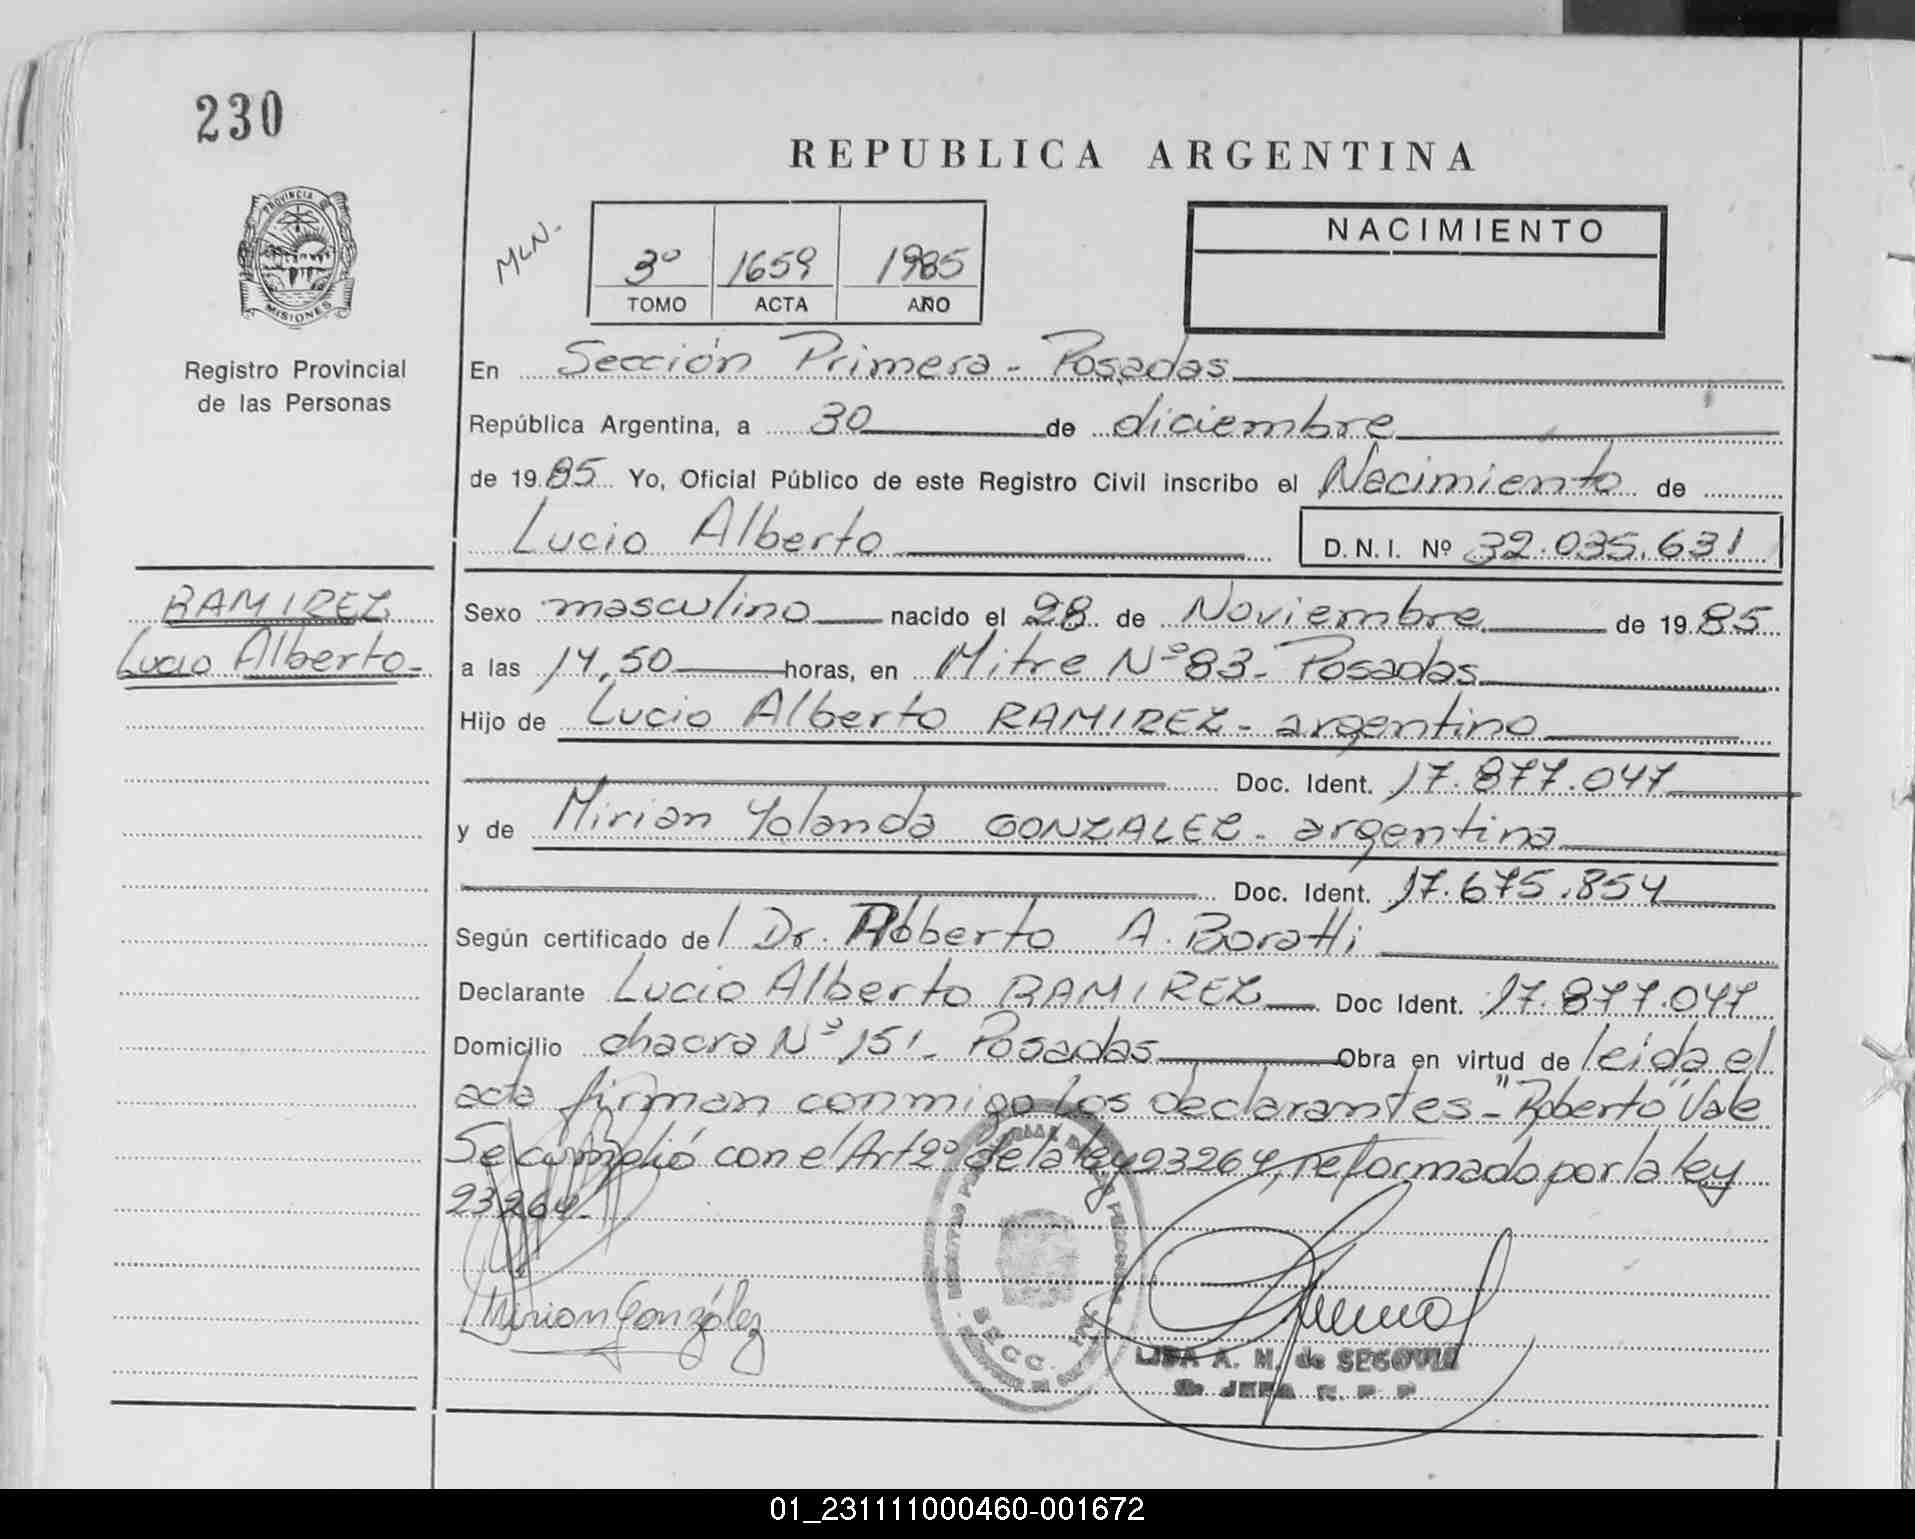 230
REPUBLICA ARGENTINA
PROVINCIA DE
MISIONES
Registro Provincial
de las Personas
MLN.
3º 1659 1985
TOMO ACTA AÑO
NACIMIENTO
En Sección Primera - Posadas
República Argentina, a 30 de diciembre
de 1985 Yo, Oficial Público de este Registro Civil inscribo el Nacimiento de
Lucio Alberto D.N.I. Nº 32.035.631
RAMIREZ
Lucio Alberto -
Sexo masculino nacido el 28 de Noviembre de 1985
a las 14,50 horas, en Mitre Nº 83 - Posadas
Hijo de Lucio Alberto RAMIREZ - argentino
Doc. Ident. 17.877.047
y de Mirian Yolanda GONZALEZ - argentina
Doc. Ident. 17.675.854
Según certificado del Dr. Roberto A. Boratti
Declarante Lucio Alberto RAMIREZ Doc Ident. 17.877.047
Domicilio chacra Nº 151 - Posadas Obra en virtud de leida el
acta firman conmigo los declarantes - "Roberto" Vale
Se cumplió con el Art 2º de la ley 23264, reformado por la ley
23264 -
Mirian González
SECC. 1ra
LISA A. M. de SEGOVIA
JEFA R. P. P.
01_231111000460-001672